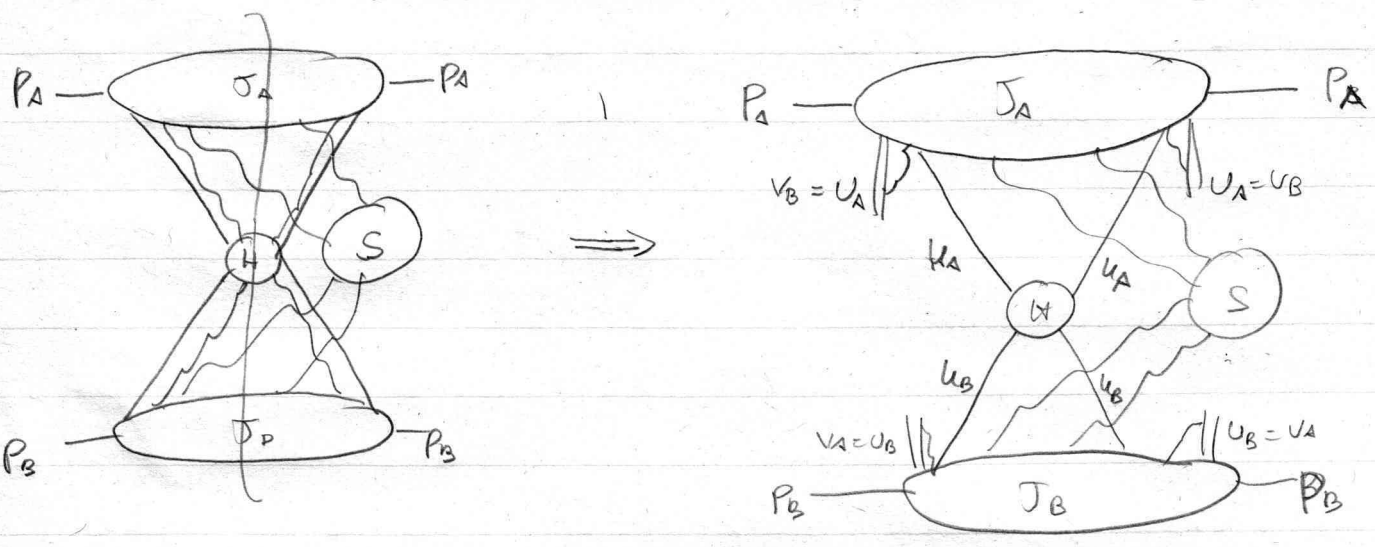 P_A J_A P_A
H S
J_P
P_B P_B
⇒
P_A J_A P_A
V_B = U_A U_A = U_B
k_A k_A
H S
k_B k_B
V_A = U_B U_B = V_A
P_B J_B P_B